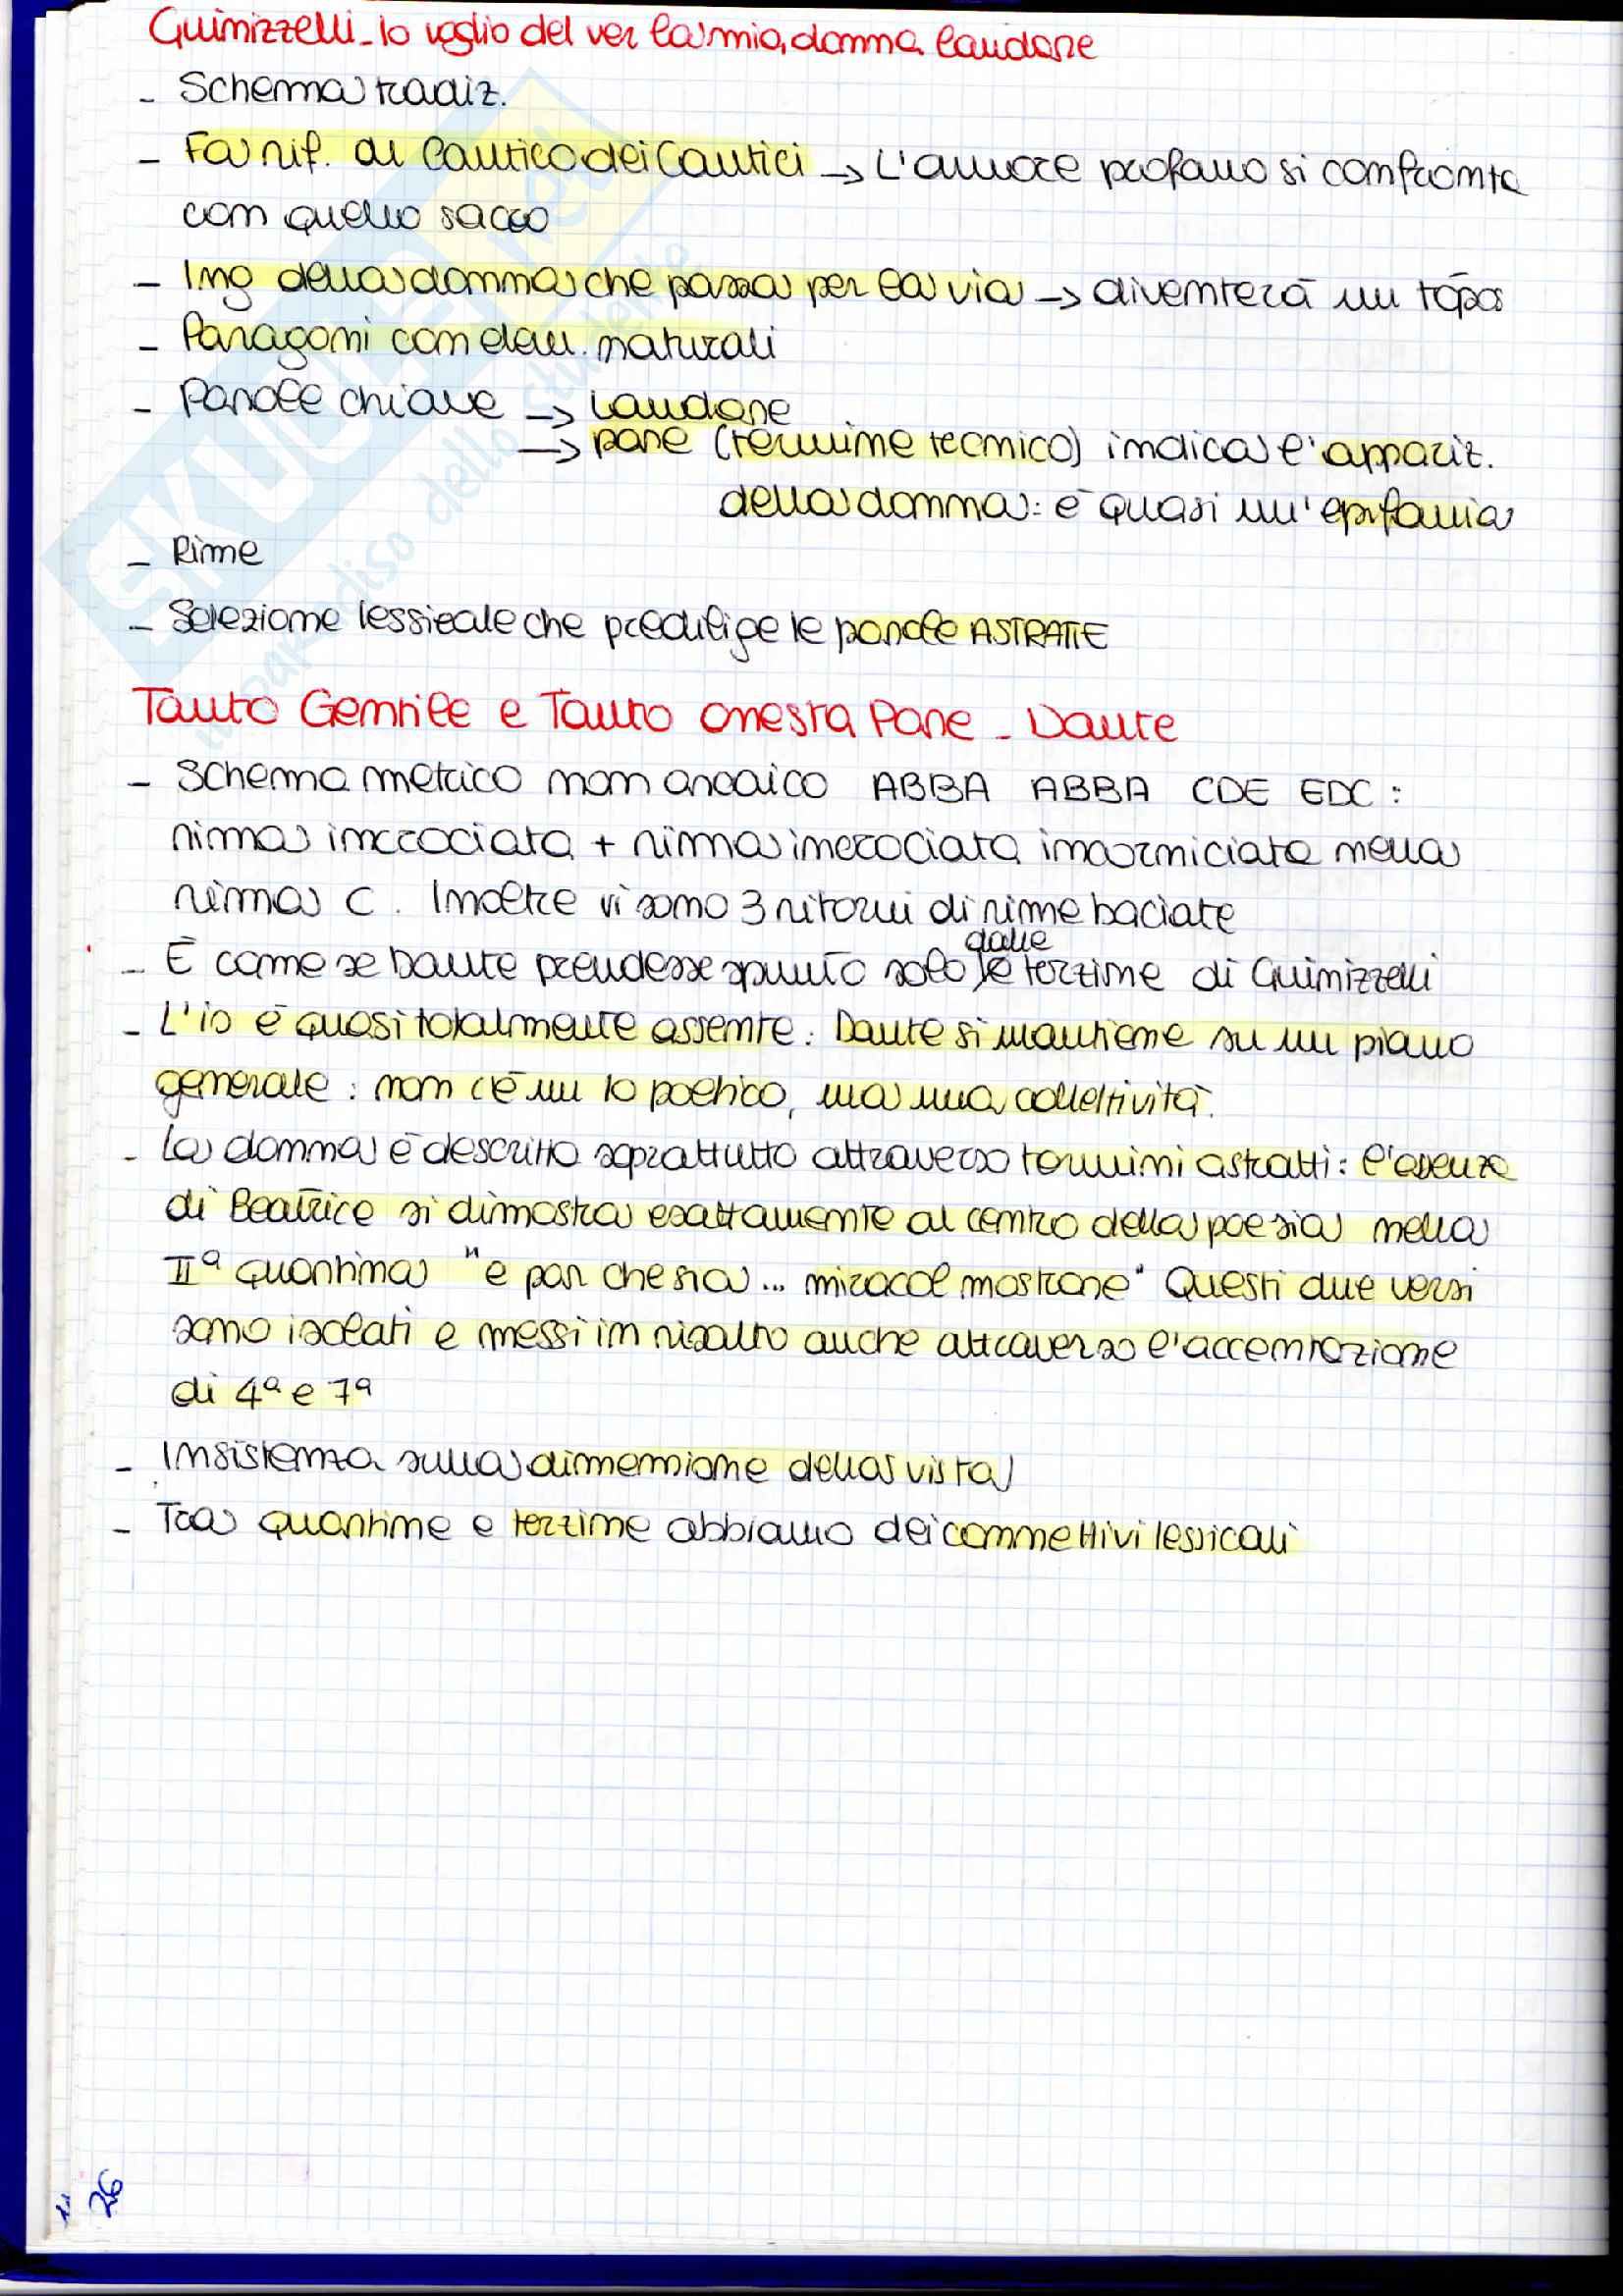 Guinizzelli - Io voglio del ver la mia donna laudare
- Schema tradiz.
- Fa rif. al Cantico dei Cantici -> L'amore profano si confronta
con quello sacro
- Img della donna che passa per la via -> diventerà un tòpos
- Paragoni con elem. naturali
- Parole chiave -> Laudare
-> pare (termine tecnico) indica l'appariz.
della donna: è quasi un'epifania
- Rime
- Selezione lessicale che predilige le parole ASTRATTE
Tanto Gentile e Tanto onesta Pare - Dante
- Schema metrico non arcaico ABBA ABBA CDE EDC:
rima incrociata + rima incrociata incorniciata nella
rima C. Inoltre vi sono 3 ritorni di rime baciate
dalle
- È come se Dante prendesse spunto solo le terzine di Guinizzelli
- L'io è quasi totalmente assente: Dante si mantiene su un piano
generale: non c'è un Io poetico, ma una collettività.
- La donna è descritta soprattutto attraverso termini astratti: l'essenza
di Beatrice si dimostra esattamente al centro della poesia nella
IIª quartina "e par che sia... miracol mostrare" Questi due versi
sono isolati e messi in risalto anche attraverso l'accentazione
di 4ª e 7ª
- Insistenza sulla dimensione della vista
- Tra quartine e terzine abbiamo dei connettivi lessicali
26
SKUOLA.net
il paradiso dello studente